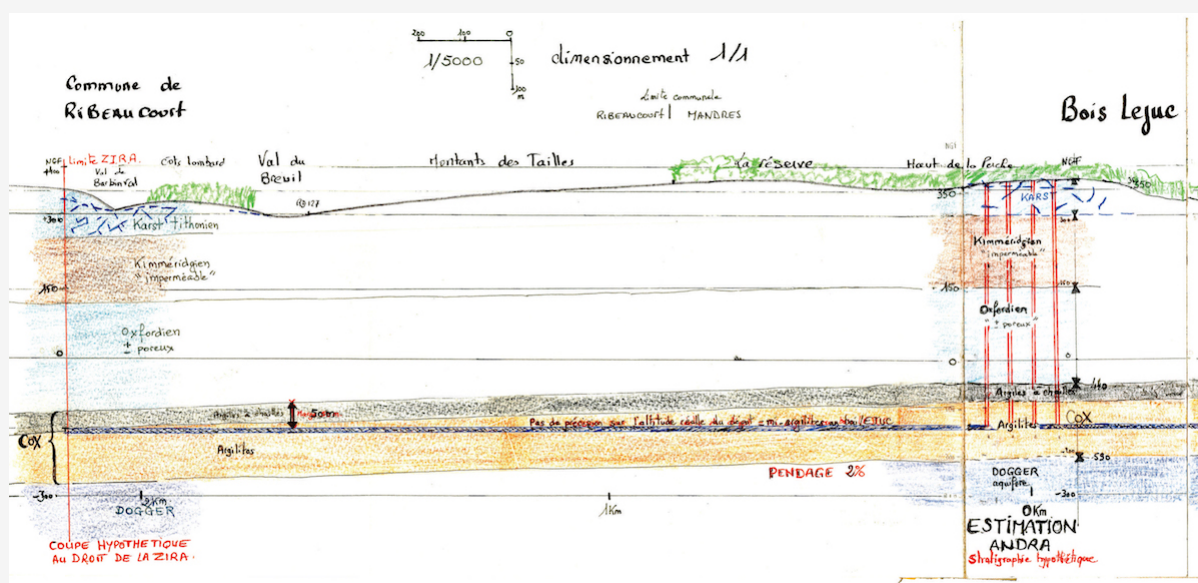 200 100 0
1/5000
50
100
m
dimensionnement 1/1
Commune de
RIBEAUCOURT
Limite communale
RIBEAUCOURT | MANDRES
Bois Lejuc
NGF
+400
limite ZIRA.
Val de
Barbinval
Cots lombard
Val du
Breuil
RD 127
Montants des Tailles
La réserve
Haut de la Poche
NGF
350
350
+300
Karst Tithonien
KARST
300
Kimméridgien
"imperméable"
Kimméridgien
"imperméable"
150
150
150
Oxfordien
± poreux
Oxfordien
"± poreux"
0
0
0
Argiles à chailles
50m
Argiles à chailles
-140
COX
Pas de précision sur l'altitude réelle du dépôt
COX
Argilites
Argilites
PENDAGE 2%
-590
DOGGER
aquifère
-300
-300
2Km
DOGGER
1Km
0Km
COUPE HYPOTHETIQUE
AU DROIT DE LA ZIRA.
ESTIMATION
ANDRA
Stratigraphie hypothétique